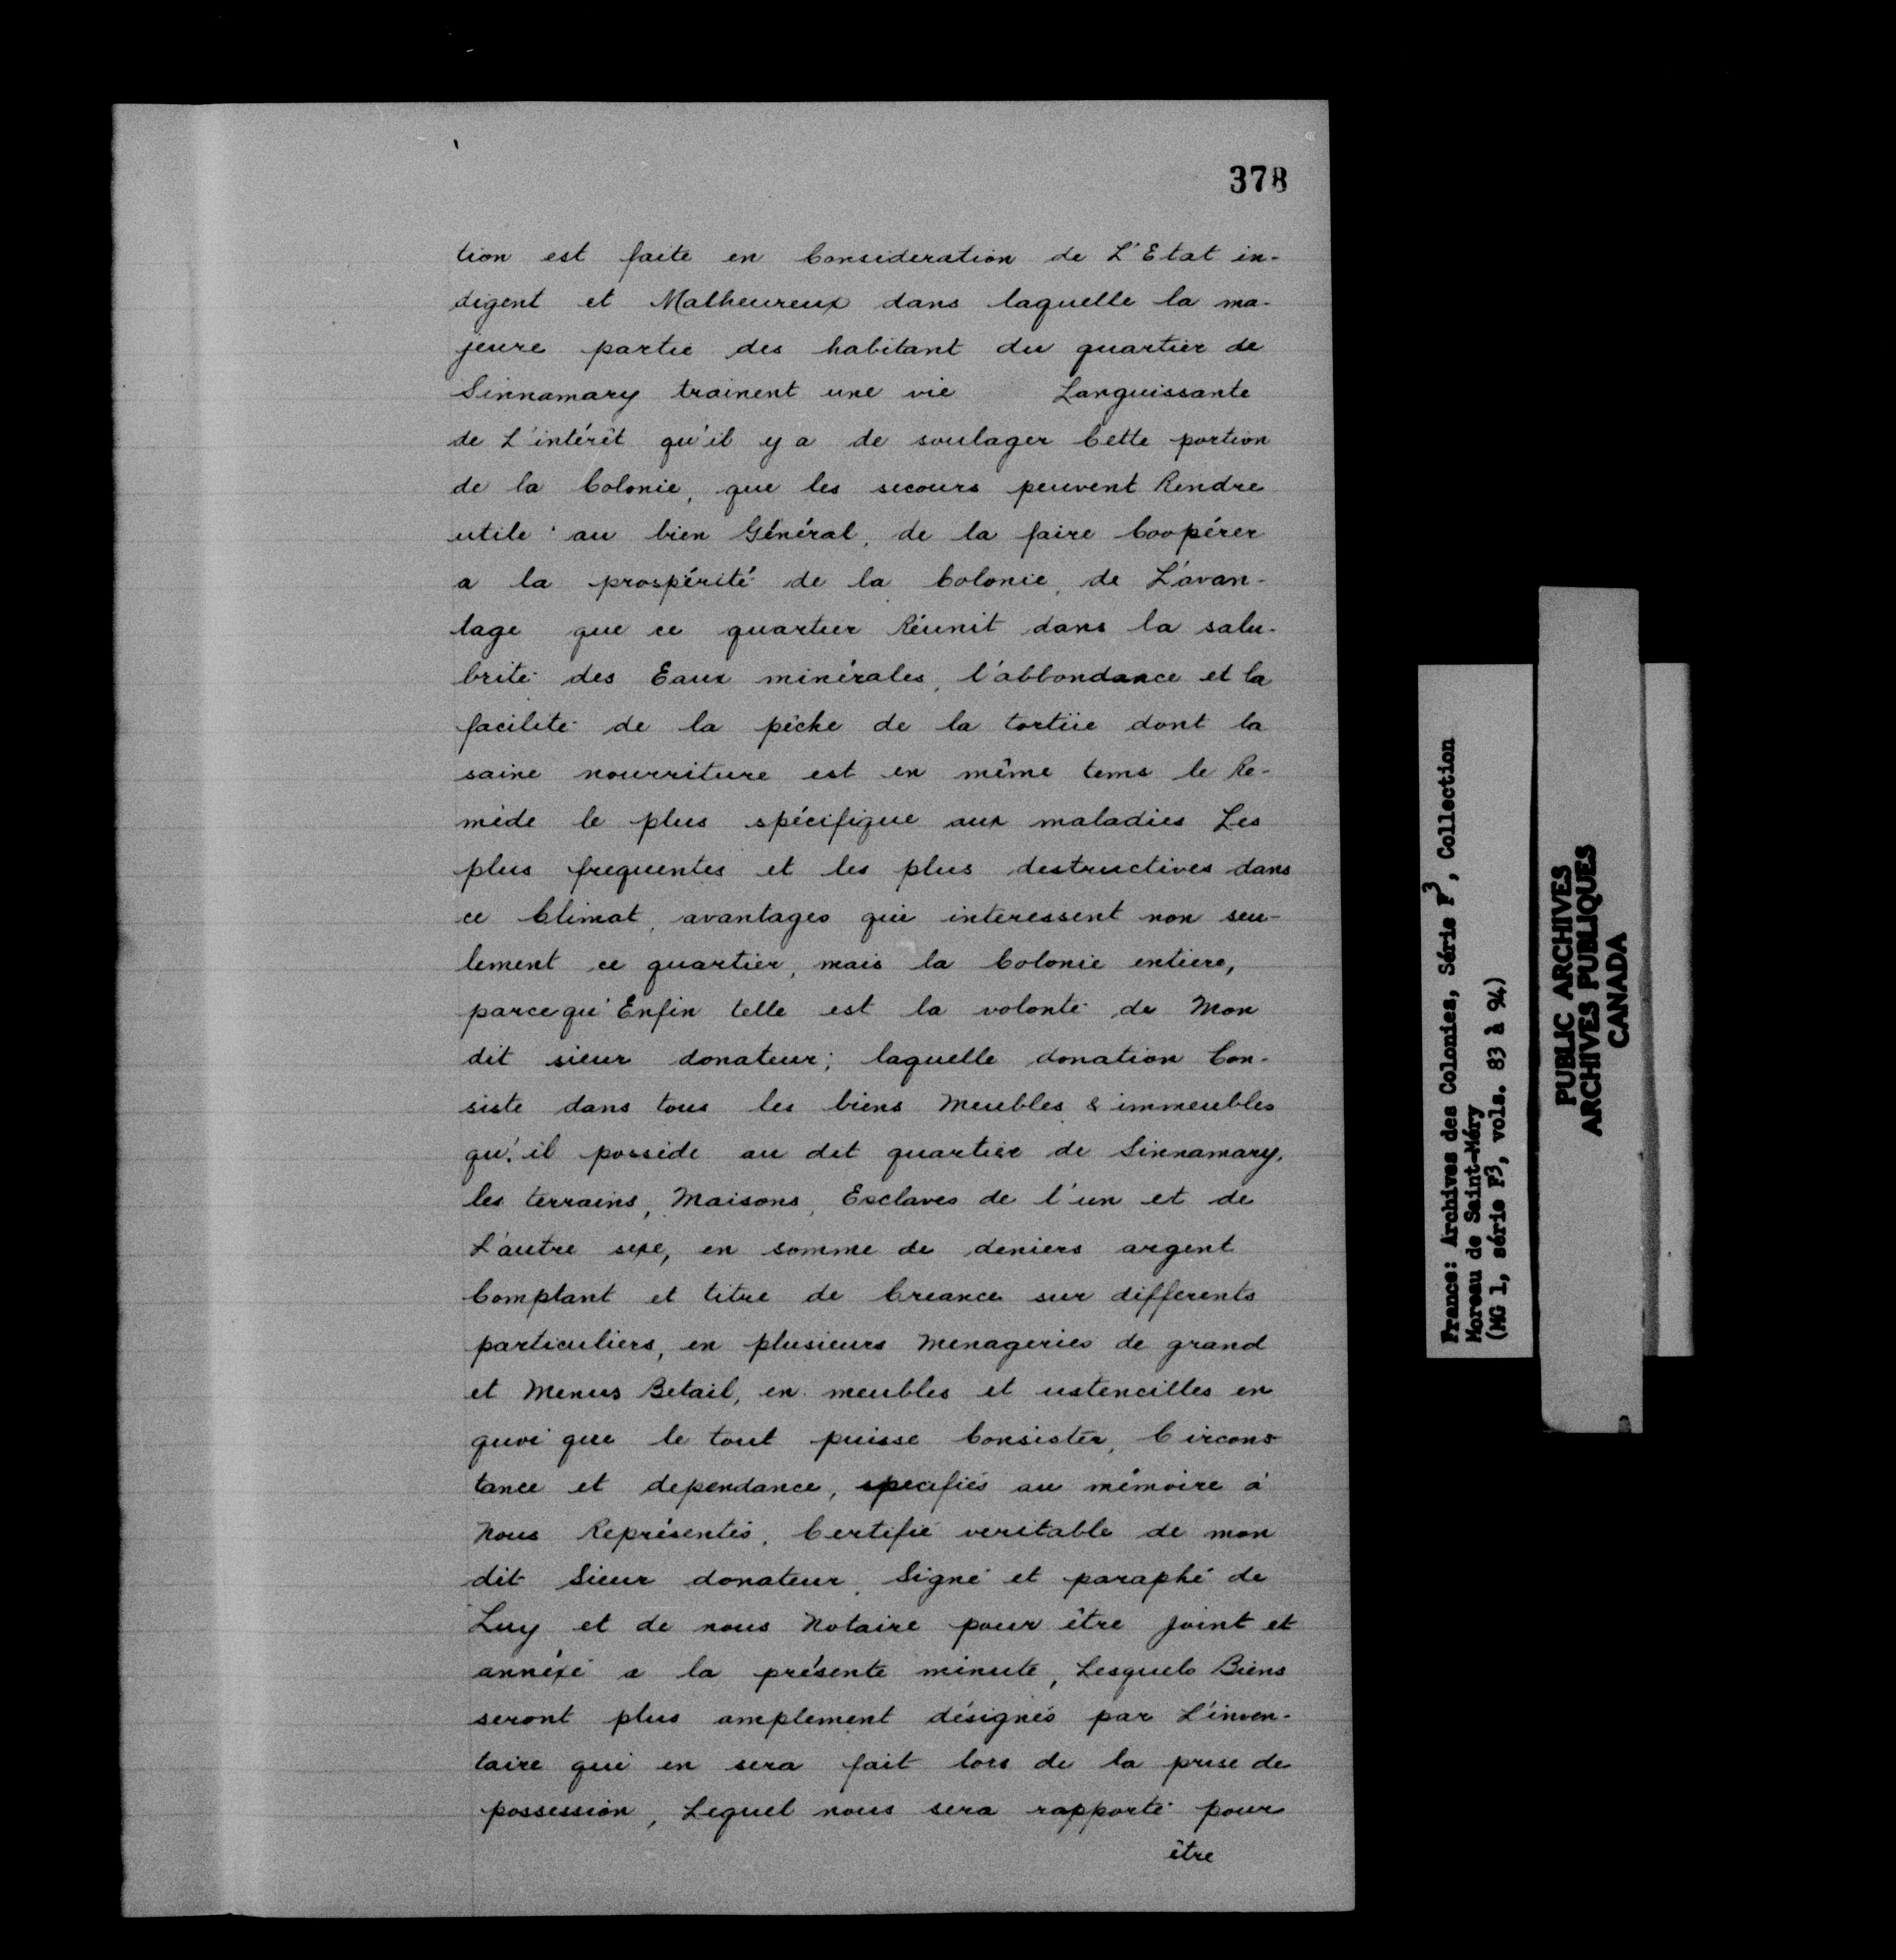 378
tion est faite en Consideration de L'Etat in-
digent et Malheureux dans laquelle la ma-
jeure partie des habitant du quartier de
Sinnamary trainent une vie Languissante
de L'intérêt qu'il y a de soulager Cette portion
de la Colonie, que les secours peuvent Rendre
utile au bien Général, de la faire Coopérer
a la prospérité de la Colonie, de L'avan-
tage que ce quartier Réunit dans la salu-
brité des Eaux minérales, l'abbondance et la
facilité de la pêche de la tortüe dont la
saine nourriture est en même tems le Re-
mède le plus spécifique aux maladies Les
plus frequentes et les plus destructives dans
ce Climat, avantages qui interessent non seu-
lement ce quartier, mais la Colonie entiere,
parcequ'Enfin telle est la volonté de Mon
dit sieur donateur; laquelle donation Con-
siste dans tous les biens Meubles & immeubles
qu'il posséde au dit quartier de Sinnamary,
les terrains, Maisons, Esclaves de l'un et de
L'autre sexe, en somme de deniers argent
Comptant et titre de Creance sur differents
particuliers, en plusieurs Menageries de grand
et Menus Betail, en meubles et ustencilles en
quoi que le tout puisse Consister, Circons-
tance et dependance, specifiés au mémoire à
Nous Représentés, Certifié veritable de mon
dit Sieur donateur, Signé et paraphé de
Luy et de nous Notaire pour être joint et
annéxé a la présente minute, Lesquels Biens
seront plus amplement désignés par L'inven-
taire qui en sera fait lors de la prise de
possession, Lequel nous sera rapporté pour
être
France: Archives des Colonies, Série F3, Collection
Moreau de Saint-Méry
(MG 1, série F3, vols. 83 à 94)
PUBLIC ARCHIVES
ARCHIVES PUBLIQUES
CANADA